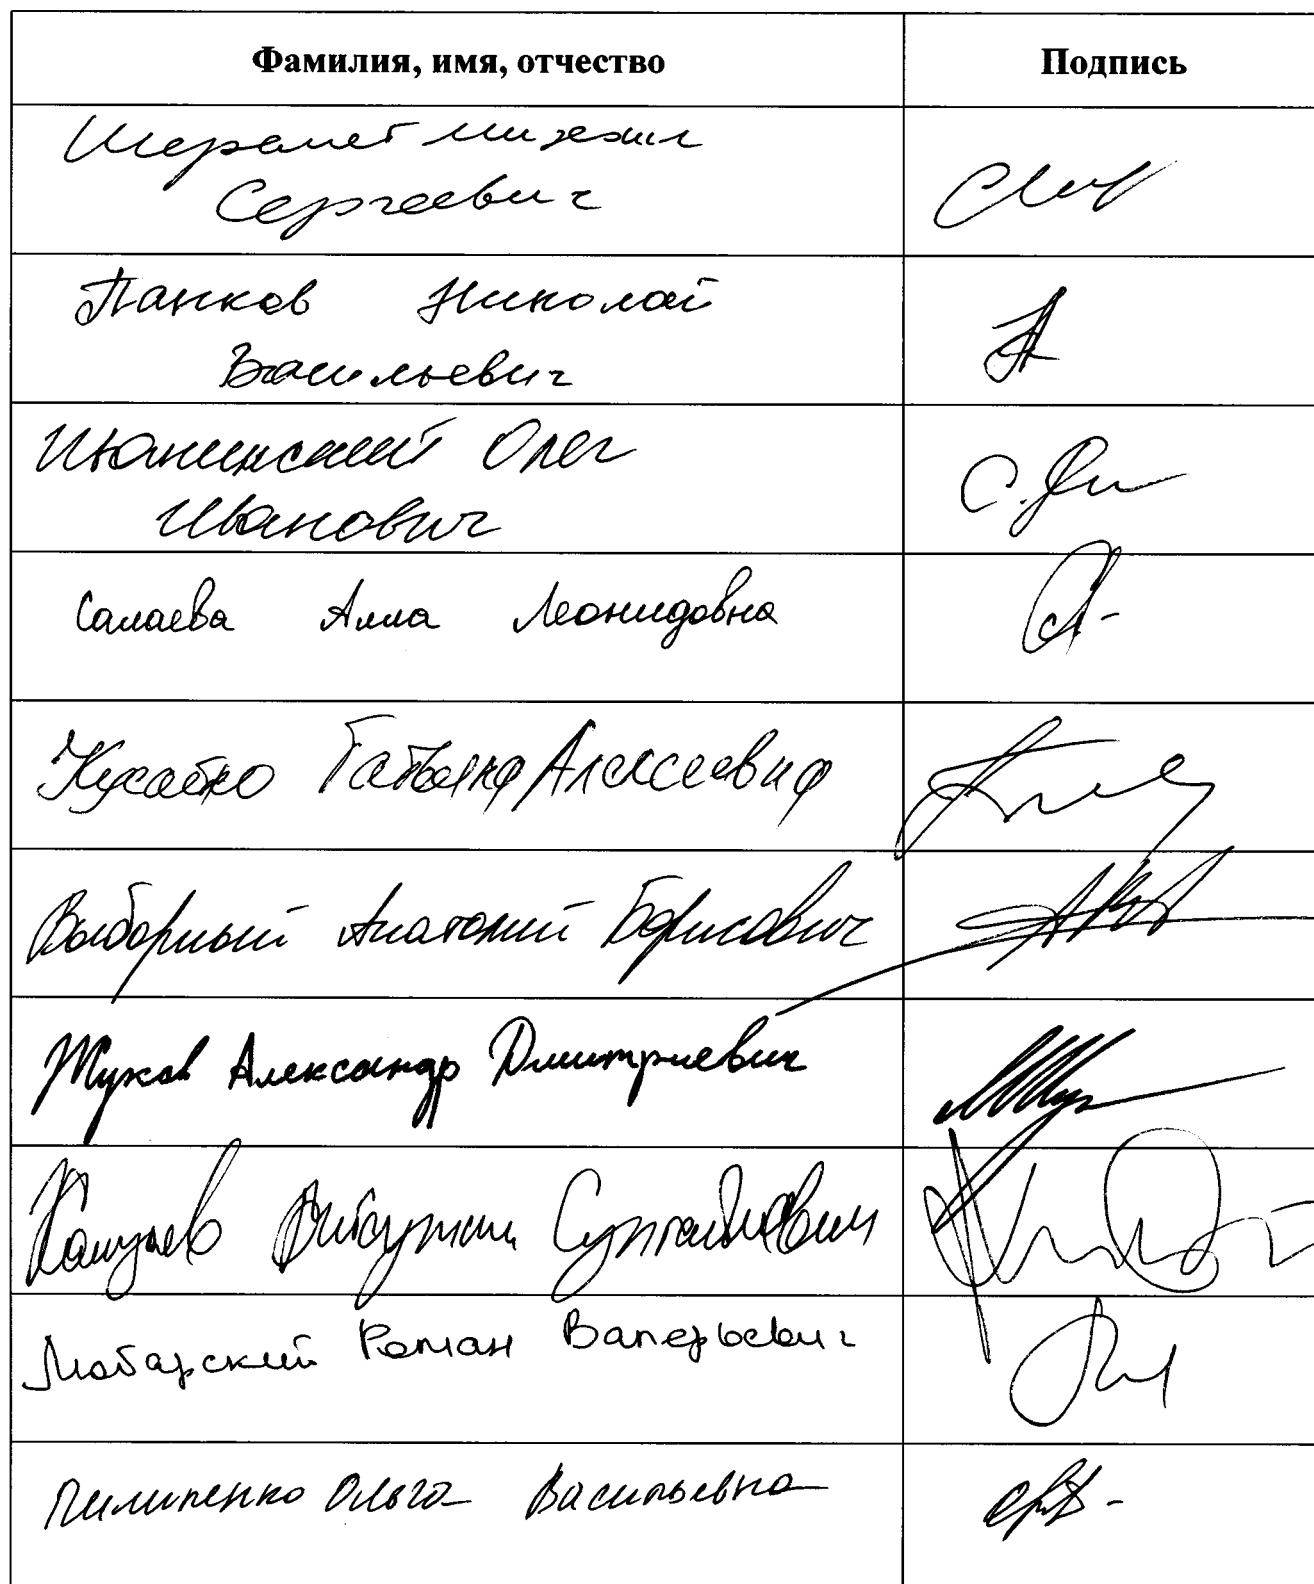 Фамилия, имя, отчество Подпись
Шеремет Михаил
Сергеевич
Панков Николай
Васильевич
Олег
Иванович
Салаева Алла Леонидовна
Кусайко Татьяна Алексеевна
Выборный Анатолий Борисович
Жуков Александр Дмитриевич
Султанович
Любарский Роман Валерьевич
Пилипенко Ольга Васильевна